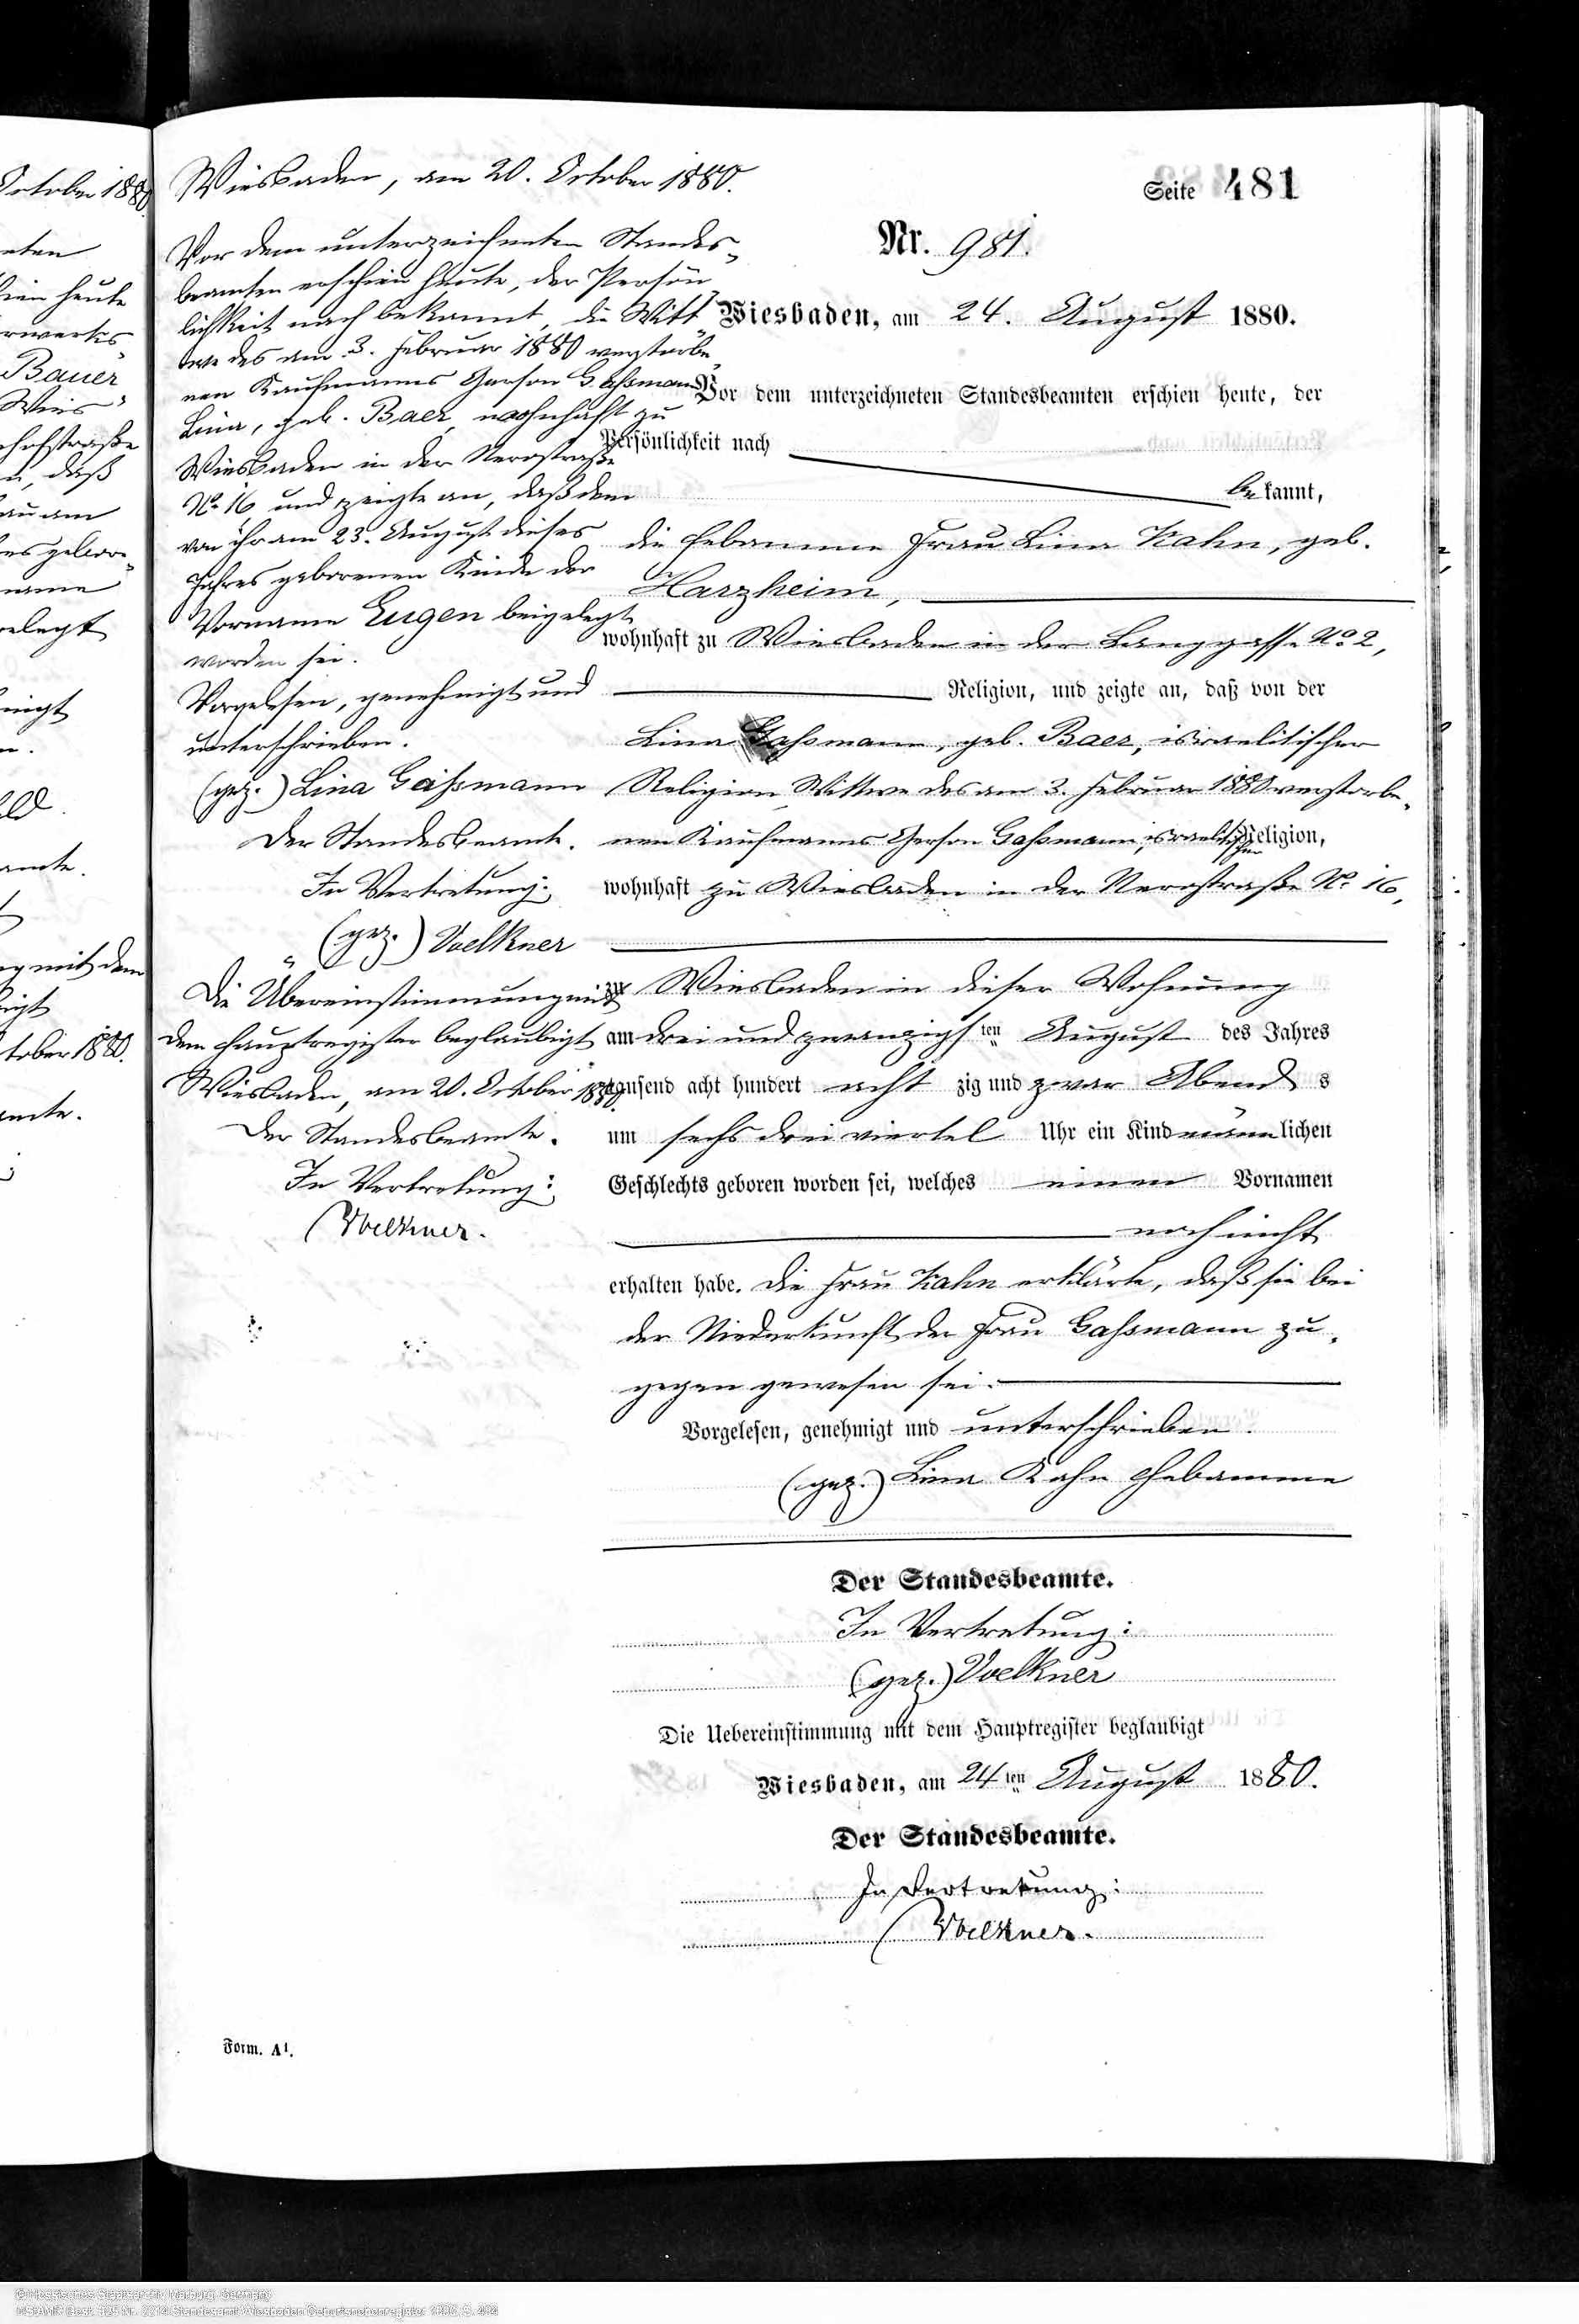 October 1880
eten
hien heute
Bauer
Wies-
hofstraße
n, daß
au am
es gebore-
name
elegt
migt
n.
amte.
ng mit dem
igt
tober 1880.
amte.
Wiesbaden, am 20. October 1880.
Vor dem unterzeichneten Standes-
beamten erschien heute, der Persön-
lichkeit nach bekannt, die Witt-
we des am 3. Februar 1880 verstorbe-
nen Kaufmanns Gerson Gaßmann
Lina, geb. Baer, wohnhaft zu
Wiesbaden in der Nerostraße
No 16 und zeigte an, daß dem
von ihr am 23. August dieses
Jahres geborenen Kinde der
Vorname Eugen beigelegt
worden sei.
Vorgelesen, genehmigt und
unterschrieben.
(gez.) Lina Gaßmann
Der Standesbeamte.
In Vertretung:
(gez.) Voelkner
Die Übereinstimmung mit
dem Hauptregister beglaubigt
Wiesbaden, am 20. October 1880.
Der Standesbeamte.
In Vertretung:
Voelkner.
Form. A1.
Seite 481
Nr. 981.
Wiesbaden, am 24. August 1880.
Vor dem unterzeichneten Standesbeamten erschien heute, der
Persönlichkeit nach
bekannt,
die Hebamme Frau Lina Kahn, geb.
Harzheim,
wohnhaft zu Wiesbaden in der Langgasse No 2,
Religion, und zeigte an, daß von der
Lina Gaßmann, geb. Baer, israelitischer
Religion, Wittwe des am 3. Februar 1880 verstorbe-
nen Kaufmanns Gerson Gaßmann, israelitischer Religion,
wohnhaft zu Wiesbaden in der Nerostraße No 16,
zu Wiesbaden in dieser Wohnung
am drei und zwanzigsten August des Jahres
tausend acht hundert achtzig und zwar Abends
um sechs drei viertel Uhr ein Kind männlichen
Geschlechts geboren worden sei, welches einen Vornamen
noch nicht
erhalten habe. Die Frau Kahn erklärte, daß sie bei
der Niederkunft der Frau Gaßmann zu-
gegen gewesen sei.
Vorgelesen, genehmigt und unterschrieben.
(gez.) Lina Kahn Hebamme
Der Standesbeamte.
In Vertretung:
(gez.) Voelkner
Die Uebereinstimmung mit dem Hauptregister beglaubigt
Wiesbaden, am 24ten August 1880.
Der Standesbeamte.
In Vertretung:
Voelkner.
© Hessisches Staatsarchiv Marburg, Germany